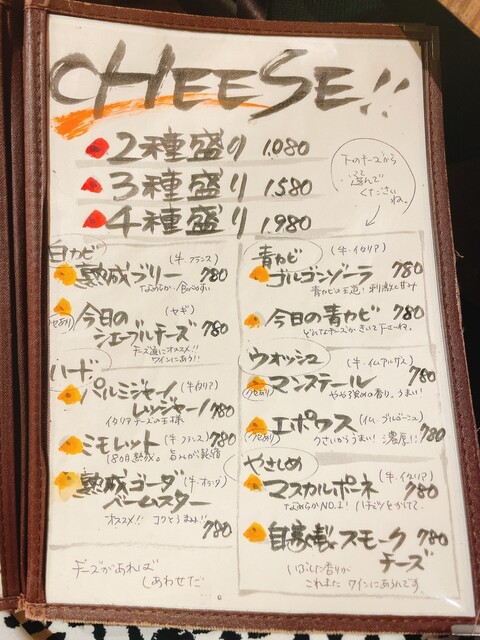 CHEESE!!
2種盛り 1,080
3種盛り 1,580
4種盛り 1,980
下のチーズから
選んで
くださいね。
白カビ
(牛・フランス)
熟成ブリー 780
なめらか/食べやすい
(ヤギ)
クセあり
今日の
シェーブルチーズ 780
チーズ通にオススメ!!
ワインにあう!!
ハード
(牛・イタリア)
パルミジャーノ
レッジャーノ 780
イタリアチーズの王様
(牛・フランス)
ミモレット 780
180日熟成。旨みが凝縮
熟成ゴーダ (牛・オランダ)
バームスター
オススメ!! コクとうまみ!! 780
チーズがあれば
しあわせだ
青カビ
(牛・イタリア)
ゴルゴンゾーラ 780
青カビの王道! 刺激と甘み
今日の青カビ 780
どんなチーズかきいて下さいね。
ウォッシュ
(牛・アルザス)
クセあり
マンステール 780
やや強めの香り。うまい!
クセあり
エポワス 780
クさいからうまい! 濃厚!!
やさしめ
(牛・イタリア)
マスカルポーネ 780
なめらかNO.1! ハチミツをかけて。
自家製スモーク 780
チーズ
いぶした香りが
これまたワインにあうんです。